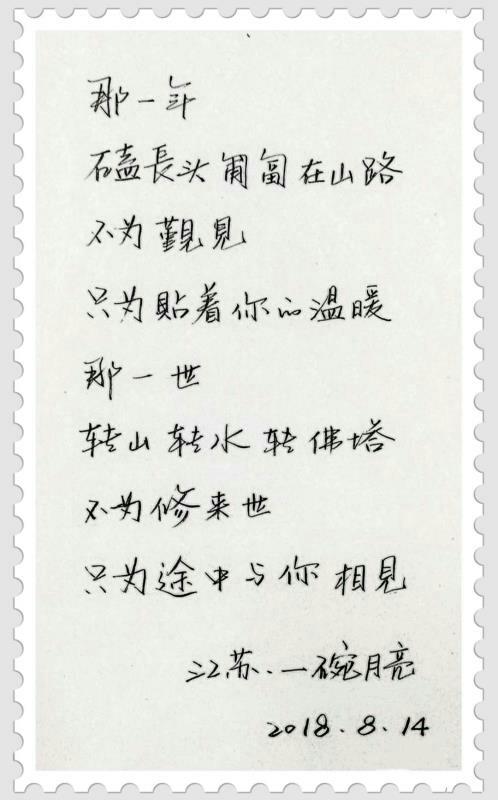 那一年
磕長头匍匐在山路
不为觐見
只为貼着你的温暖
那一世
转山转水转佛塔
不为修来世
只为途中与你相見
江苏.一碗月亮
2018.8.14